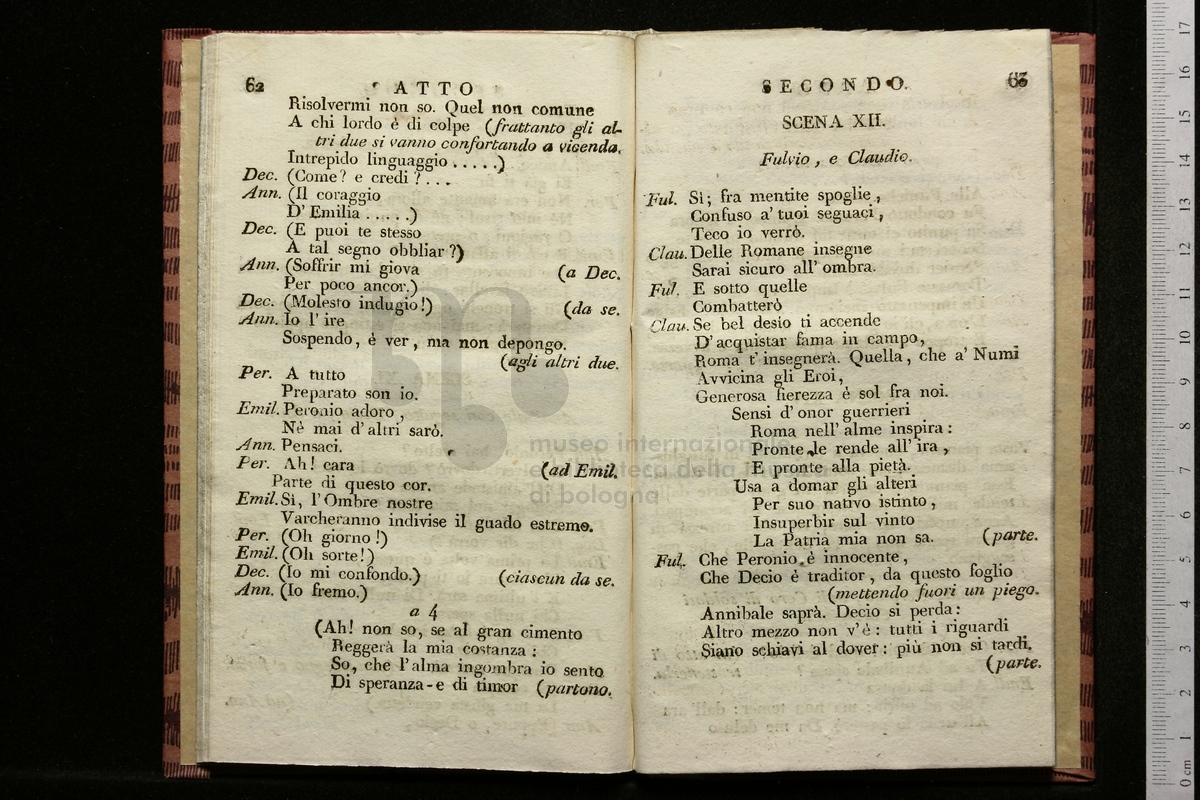 62
ATTO
Risolvermi non so. Quel non comune
A chi lordo è di colpe (frattanto gli al-
tri due si vanno confortando a vicenda.
Intrepido linguaggio . . . . .)
Dec. (Come? e credi ? . . .
Ann. (Il coraggio
D' Emilia . . . . .)
Dec. (E puoi te stesso
A tal segno obbliar ?)
Ann. (Soffrir mi giova (a Dec.
Per poco ancor.)
Dec. (Molesto indugio!) (da se.
Ann. Io l' ire
Sospendo, è ver, ma non depongo.
(agli altri due.
Per. A tutto
Preparato son io.
Emil. Peronio adoro ,
Nè mai d'altri sarò.
Ann. Pensaci.
Per. Ah! cara (ad Emil.
Parte di questo cor.
Emil. Sì, l'Ombre nostre
Varcheranno indivise il guado estremo.
Per. (Oh giorno !)
Emil. (Oh sorte!)
Dec. (Io mi confondo.) (ciascun da se.
Ann. (Io fremo.)
a 4
(Ah! non so, se al gran cimento
Reggerà la mia costanza :
So, che l'alma ingombra io sento
Di speranza-e di timor (partono.
SECONDO.
63
SCENA XII.
Fulvio , e Claudio.
Ful. Sì; fra mentite spoglie ,
Confuso a' tuoi seguaci ,
Teco io verrò.
Clau. Delle Romane insegne
Sarai sicuro all' ombra.
Ful. E sotto quelle
Combatterò
Clau. Se bel desio ti accende
D' acquistar fama in campo,
Roma t' insegnerà. Quella , che a' Numi
Avvicina gli Eroi,
Generosa fierezza è sol fra noi.
Sensi d' onor guerrieri
Roma nell' alme inspira :
Pronte le rende all' ira ,
E pronte alla pietà.
Usa a domar gli alteri
Per suo nativo istinto ,
Insuperbir sul vinto
La Patria mia non sa. (parte.
Ful. Che Peronio è innocente ,
Che Decio è traditor , da questo foglio
(mettendo fuori un piego.
Annibale saprà. Decio si perda :
Altro mezzo non v'è : tutti i riguardi
Siano schiavi al dover : più non si tardi.
(parte.
museo internazionale
e biblioteca della musica
di bologna